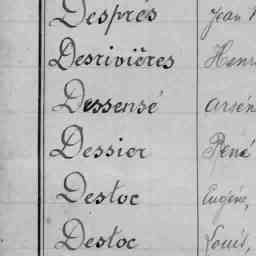 Després Jean
Desrivières Henri
Dessensé Arsén
Dessier René
Destoc Eugène,
Destoc Louis,